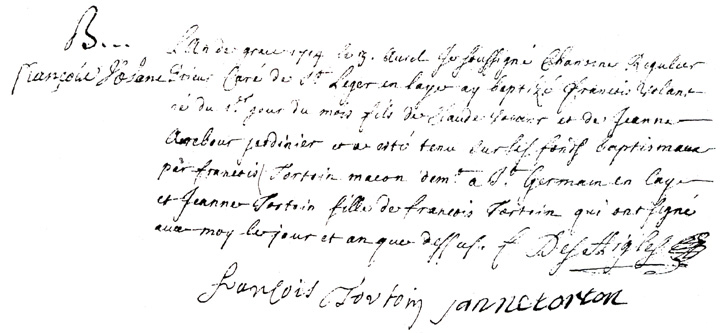 B...
françois Volant
L'An de grace 1714 le 3. Avril Je soussigné Chanoine Regulier
Prieur Curé de St. Leger en Laye ay baptizé François Volant
né du 1er jour du mois fils de Claude et de Jeanne
jardinier et a esté tenu sur les fonds baptismaux
par francois Tortoin macon demt. a St. Germain en Laye
et Jeanne Tortoin fille de francois Tortoin qui ont signé
avec moy le jour et an que dessus. f Des Aigles
françois Tortoin janne torton